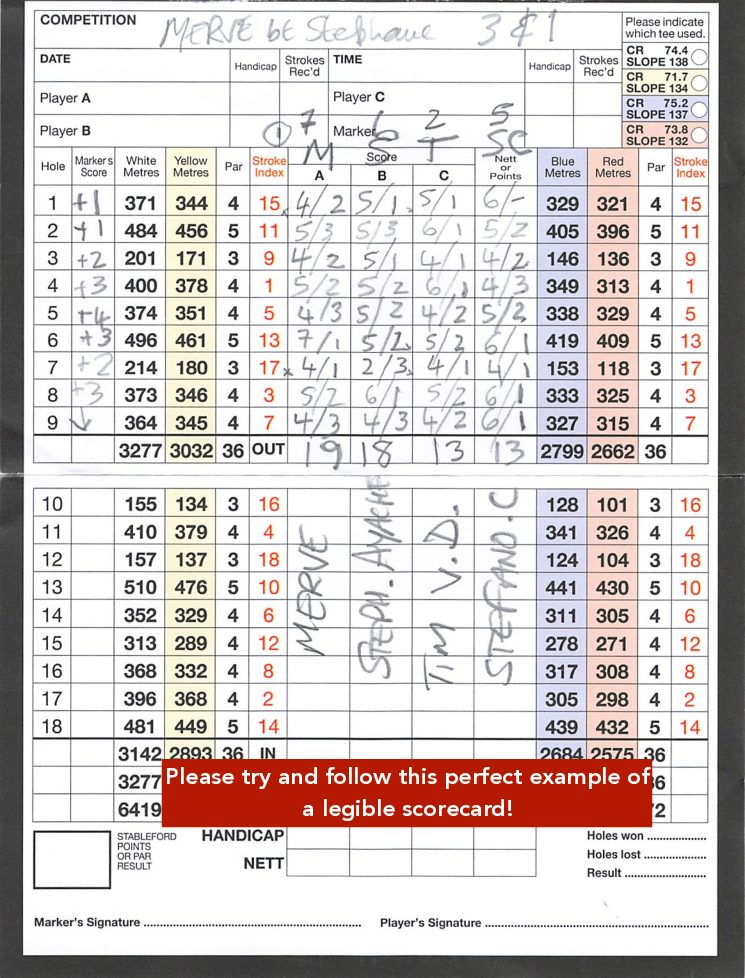 COMPETITION MERVE bt Stephane 3 & 1
Please indicate which tee used.
DATE Handicap Strokes Rec'd TIME Handicap Strokes Rec'd
CR 74.4 SLOPE 138
CR 71.7 SLOPE 134
CR 75.2 SLOPE 137
CR 73.8 SLOPE 132
Player A Player C
Player B 1 7 Marker 6 2 5
M S T SC
Hole Marker's Score White Metres Yellow Metres Par Stroke Index Score A B C Nett or Points Blue Metres Red Metres Par Stroke Index
1 +1 371 344 4 15 4/2 5/1 5/1 6/- 329 321 4 15
2 +1 484 456 5 11 5/3 5/3 6/1 5/2 405 396 5 11
3 +2 201 171 3 9 4/2 5/1 4/1 4/2 146 136 3 9
4 +3 400 378 4 1 5/2 5/2 6/1 4/3 349 313 4 1
5 +4 374 351 4 5 4/3 5/2 4/2 5/2 338 329 4 5
6 +3 496 461 5 13 7/1 5/2 5/2 6/1 419 409 5 13
7 +2 214 180 3 17 4/1 2/3 4/1 4/1 153 118 3 17
8 +3 373 346 4 3 5/2 6/1 5/2 6/1 333 325 4 3
9 ↓ 364 345 4 7 4/3 4/3 4/2 6/1 327 315 4 7
3277 3032 36 OUT 19 18 13 13 2799 2662 36
10 155 134 3 16 128 101 3 16
11 410 379 4 4 341 326 4 4
12 157 137 3 18 124 104 3 18
13 510 476 5 10 441 430 5 10
14 352 329 4 6 311 305 4 6
15 313 289 4 12 278 271 4 12
16 368 332 4 8 317 308 4 8
17 396 368 4 2 305 298 4 2
18 481 449 5 14 439 432 5 14
MERVE
STEPH. AYACHE
TIM V.D.
STEFANO.C
3142 2893 36 IN 2684 2575 36
3277 36
6419 72
Please try and follow this perfect example of
a legible scorecard!
STABLEFORD POINTS OR PAR RESULT
HANDICAP
NETT
Holes won
Holes lost
Result
Marker's Signature Player's Signature